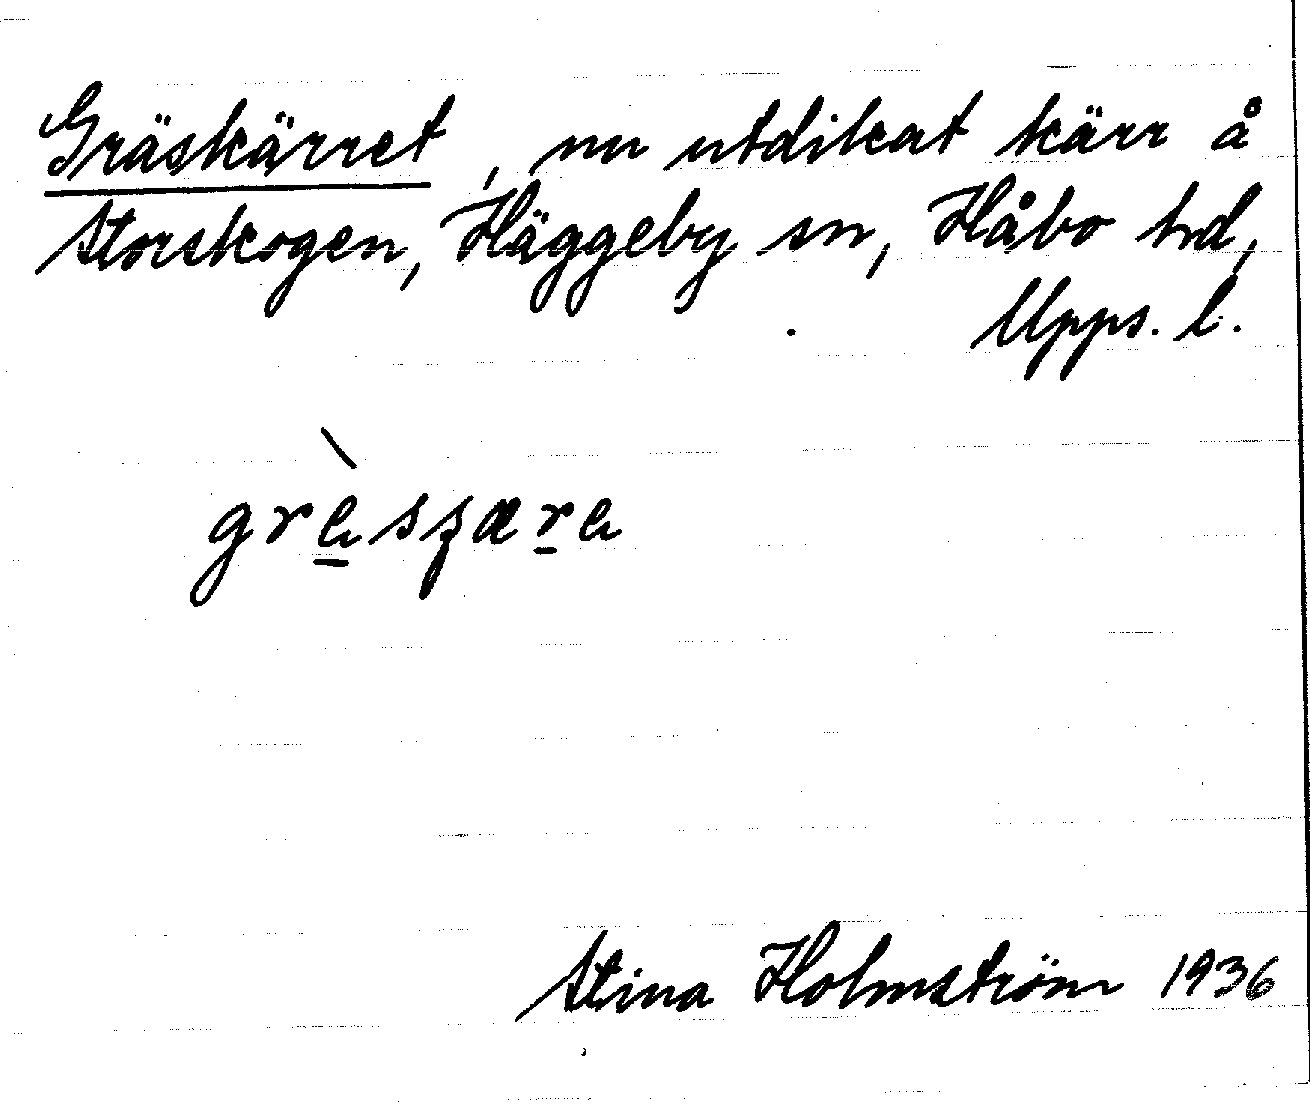 Gräskärret, nu utdikat kärr å
Storskogen, Häggeby sn, Håbo hd,
Upps. l.
grèsʒære
Stina Holmström 1936